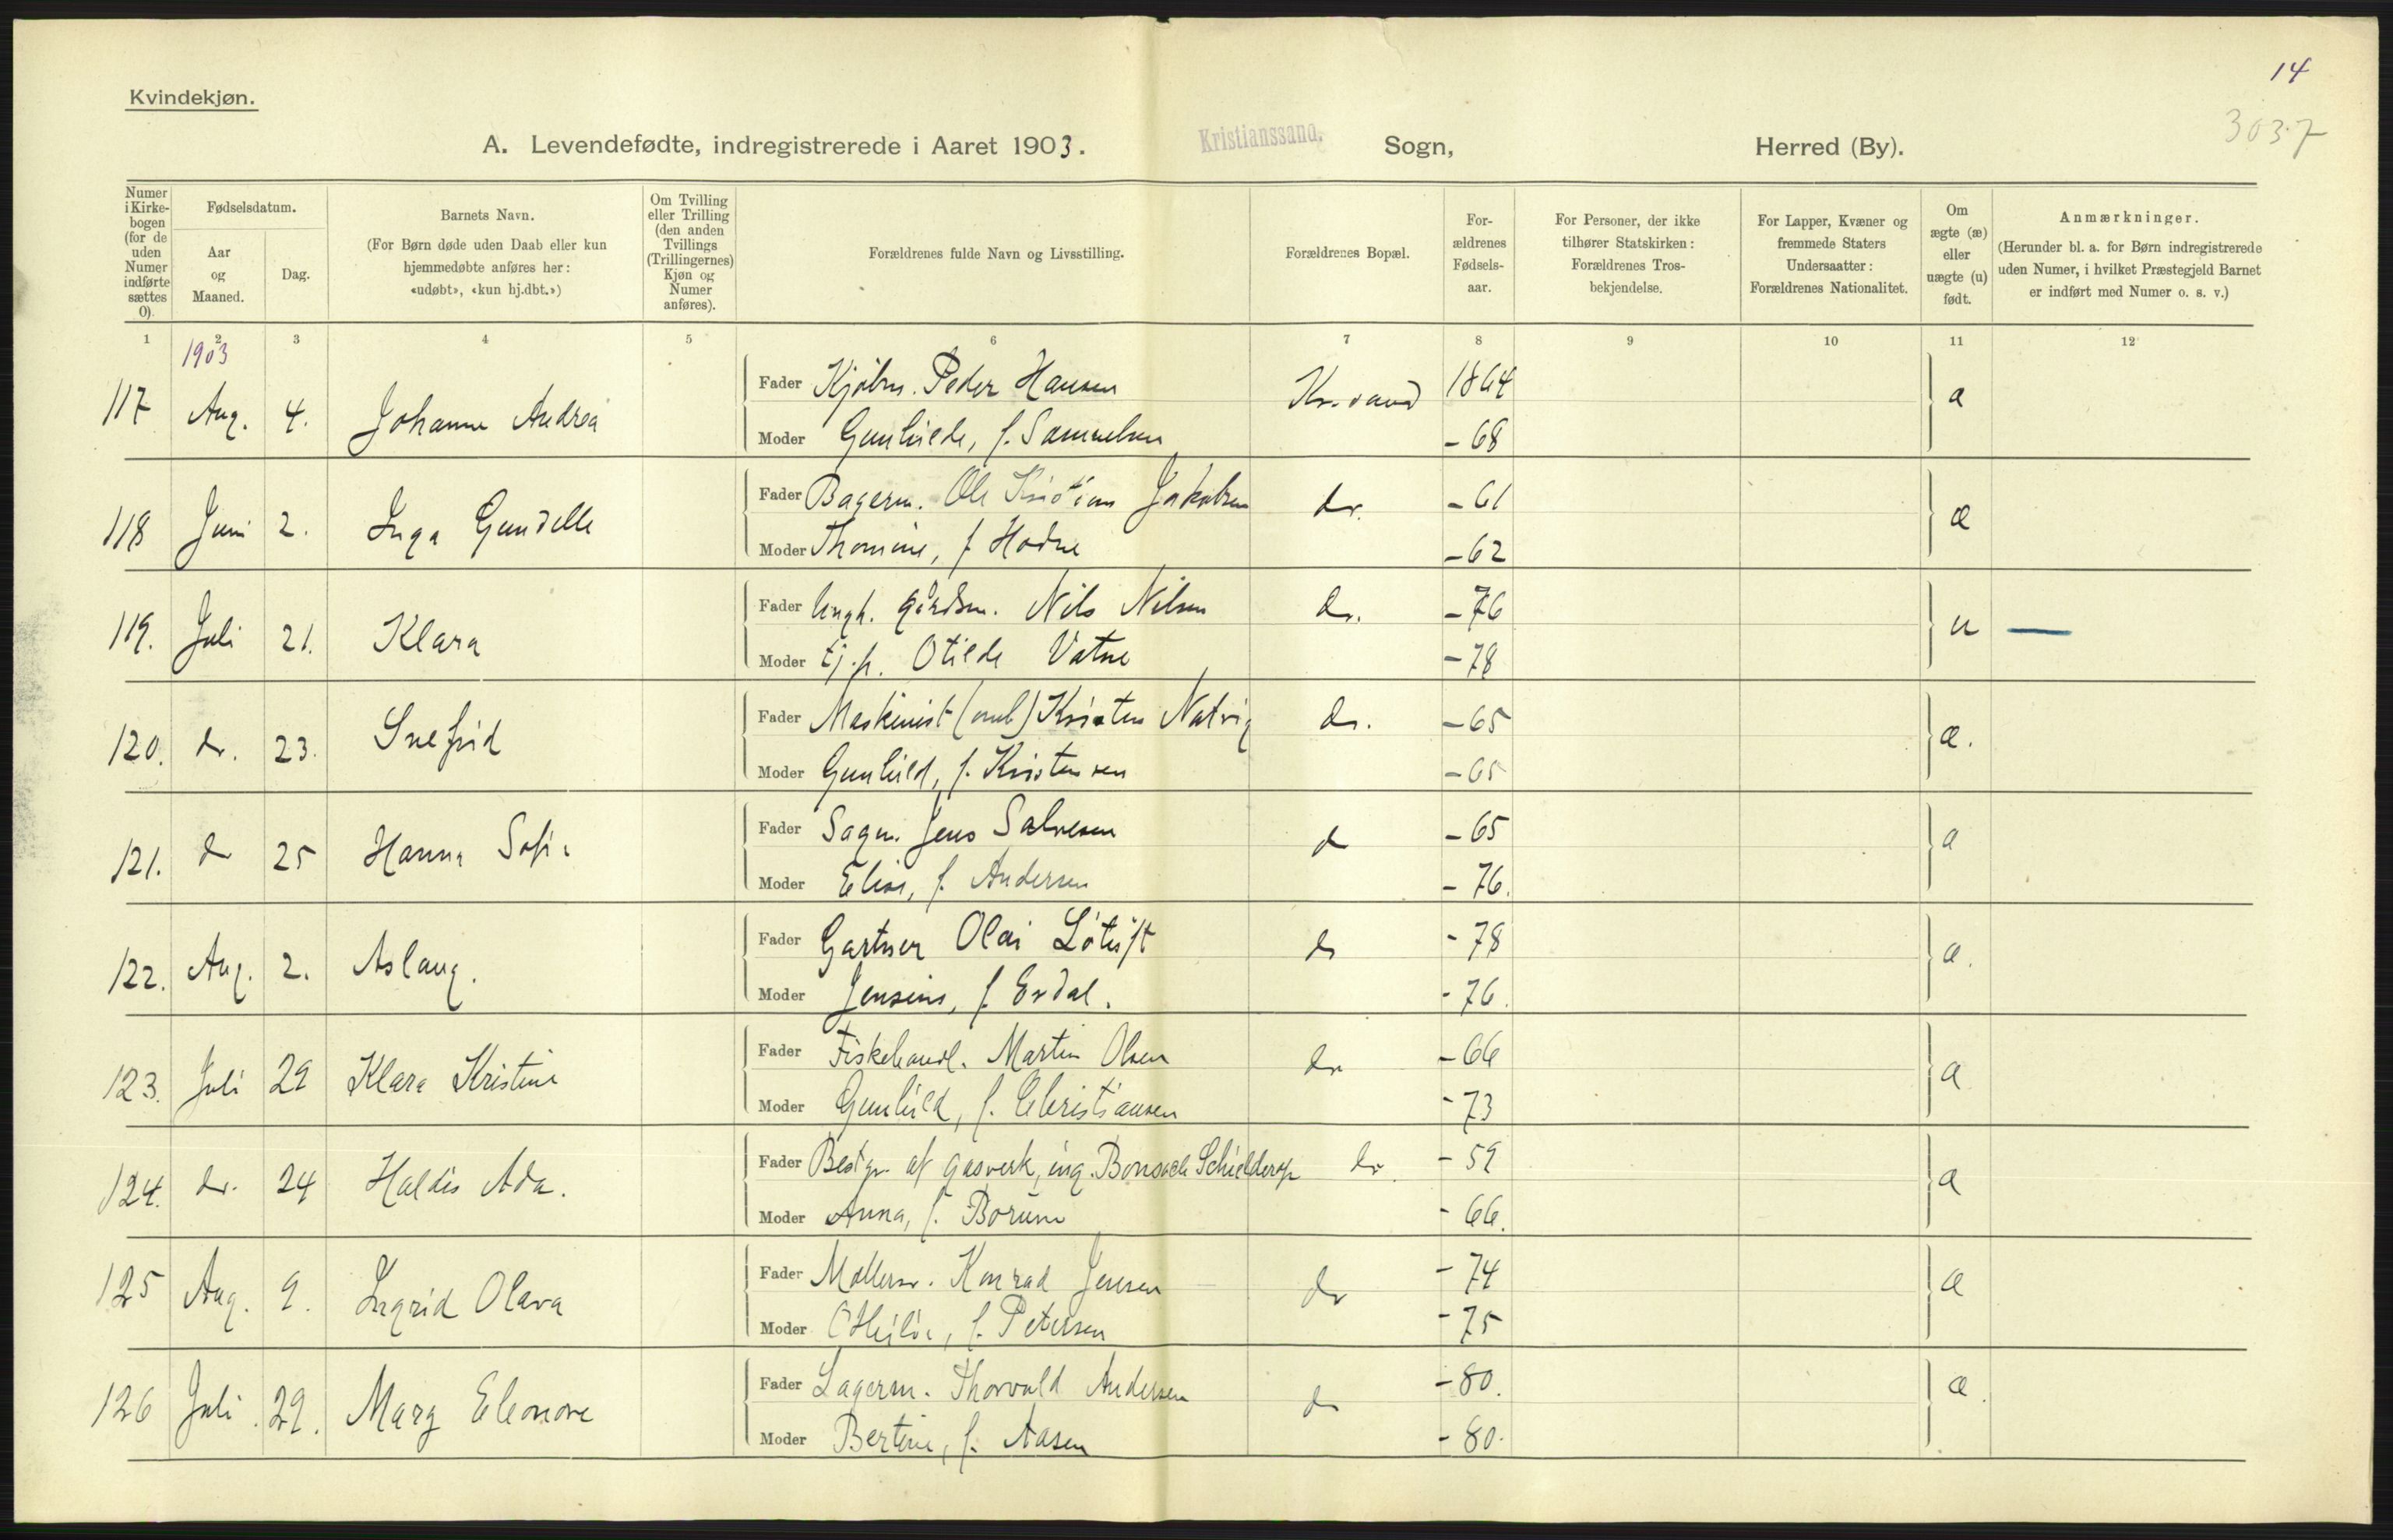 14
Kvindekjøn.
3037
A. Levendefødte, indregistrerede i Aaret 1903. Kristianssand. Sogn, Herred (By).
Numer i Kirkebogen (for de uden Numer indførte sættes 0).
Fødselsdatum.
Aar og Maaned.
Dag.
Barnets Navn.
(For Børn døde uden Daab eller kun hjemmedøbte anføres her: «udøbt», «kun hj.dbt.»)
Om Tvilling eller Trilling (den anden Tvillings (Trillingernes) Kjøn og Numer anføres).
Forældrenes fulde Navn og Livsstilling.
Forældrenes Bopæl.
Forældrenes Fødselsaar.
For Personer, der ikke tilhører Statskirken: Forældrenes Trosbekjendelse.
For Lapper, Kvæner og fremmede Staters Undersaatter: Forældrenes Nationalitet.
Om ægte (æ) eller uægte (u) født.
Anmærkninger.
(Herunder bl. a. for Børn indregistrerede uden Numer, i hvilket Præstegjeld Barnet er indført med Numer o. s. v.)
1 2 3 4 5 6 7 8 9 10 11 12
1903
117 Aug. 4. Johanne Andrea Fader Kjøbm. Peder Hansen Kr.sand 1864 æ
Moder Gunhilde, f. Samuelsen - 68
118 Juni 2. Inga Gundelle Fader Bagerm. Ole Kristian Jakobsen do. - 61 æ
Moder Thomine, f. Hodne - 62
119. Juli 21. Klara Fader Ungk. gårdsm. Nils Nilsen do. - 76 u —
Moder Tj.p. Otilde Vatne - 78
120. do. 23. Snefrid Fader Maskinist (omb) Kristen Natvig do. - 65 æ.
Moder Gunhild, f. Kristensen - 65
121. do 25 Hanna Sofia Fader Sagm. Jens Salvesen do - 65 æ
Moder Elise, f. Andersen - 76.
122. Aug. 2. Aslaug. Fader Gartner Olai Løtuft do - 78 æ.
Moder Jensine, f. Erdal. - 76.
123. Juli 29 Klara Kristine Fader Fiskehandl. Martin Olsen do - 66 æ
Moder Gunhild, f. Christiansen - 73
124. do. 24 Haldis Ada. Fader Bestyr. af gasverk, ing. Bonsach Schielderup do. - 59 æ
Moder Anna, f. Borum - 66.
125 Aug. 9. Ingrid Olava Fader Møllersv. Konrad Jensen do - 74 æ
Moder Othilie, f. Petersen - 75
126 Juli 29. Marg Eleonore Fader Lagerm. Thorvald Andersen do - 80. æ.
Moder Bertine, f. Aasen - 80.